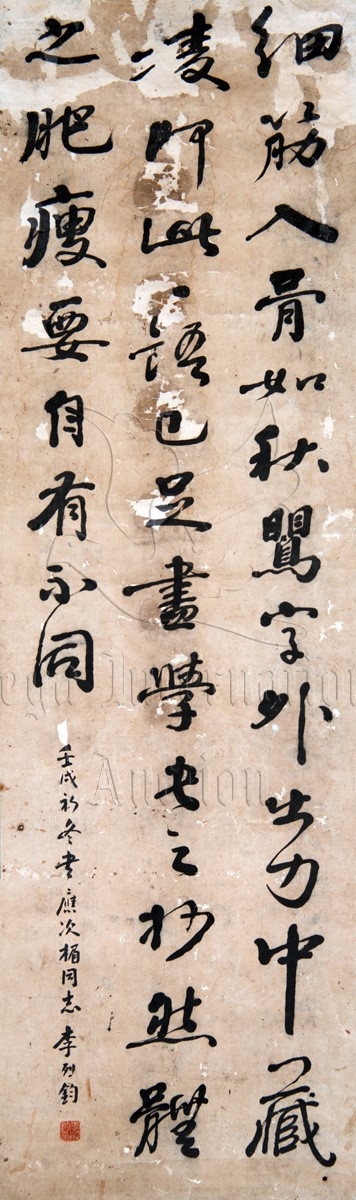 细筋入骨如秋鷹字外出力中藏
凌即此一語已足盡學书之妙然體
之肥瘦要自有不同
壬戌初冬书應次楣同志 李烈鈞